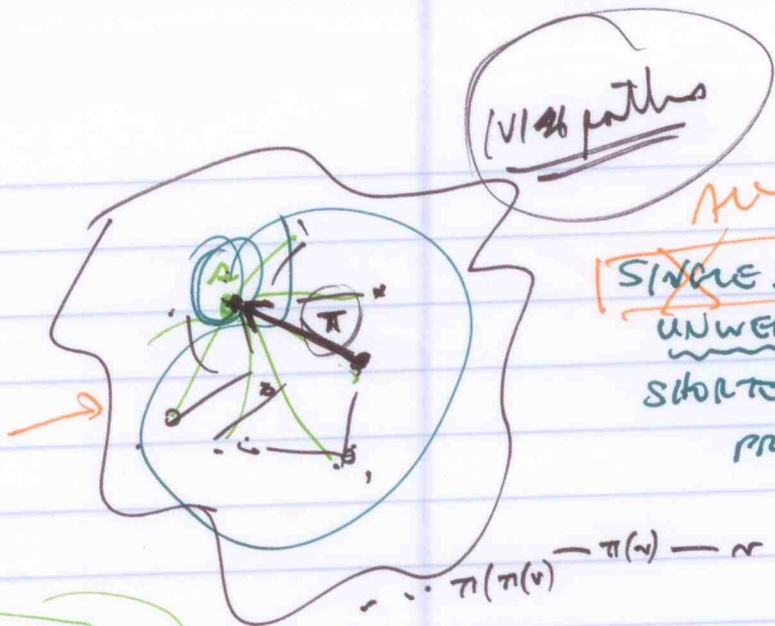 |V| paths
SINGLE
UNWE
SHORT
PR
π
π(π(v) — π(v) — v